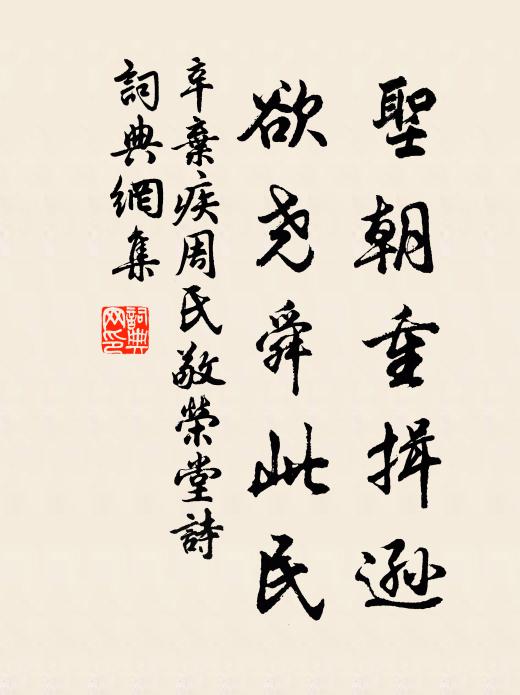 聖朝重揖遜
欲尧舜此民
辛棄疾周民敬榮堂詩
詞典網集
詞典网印